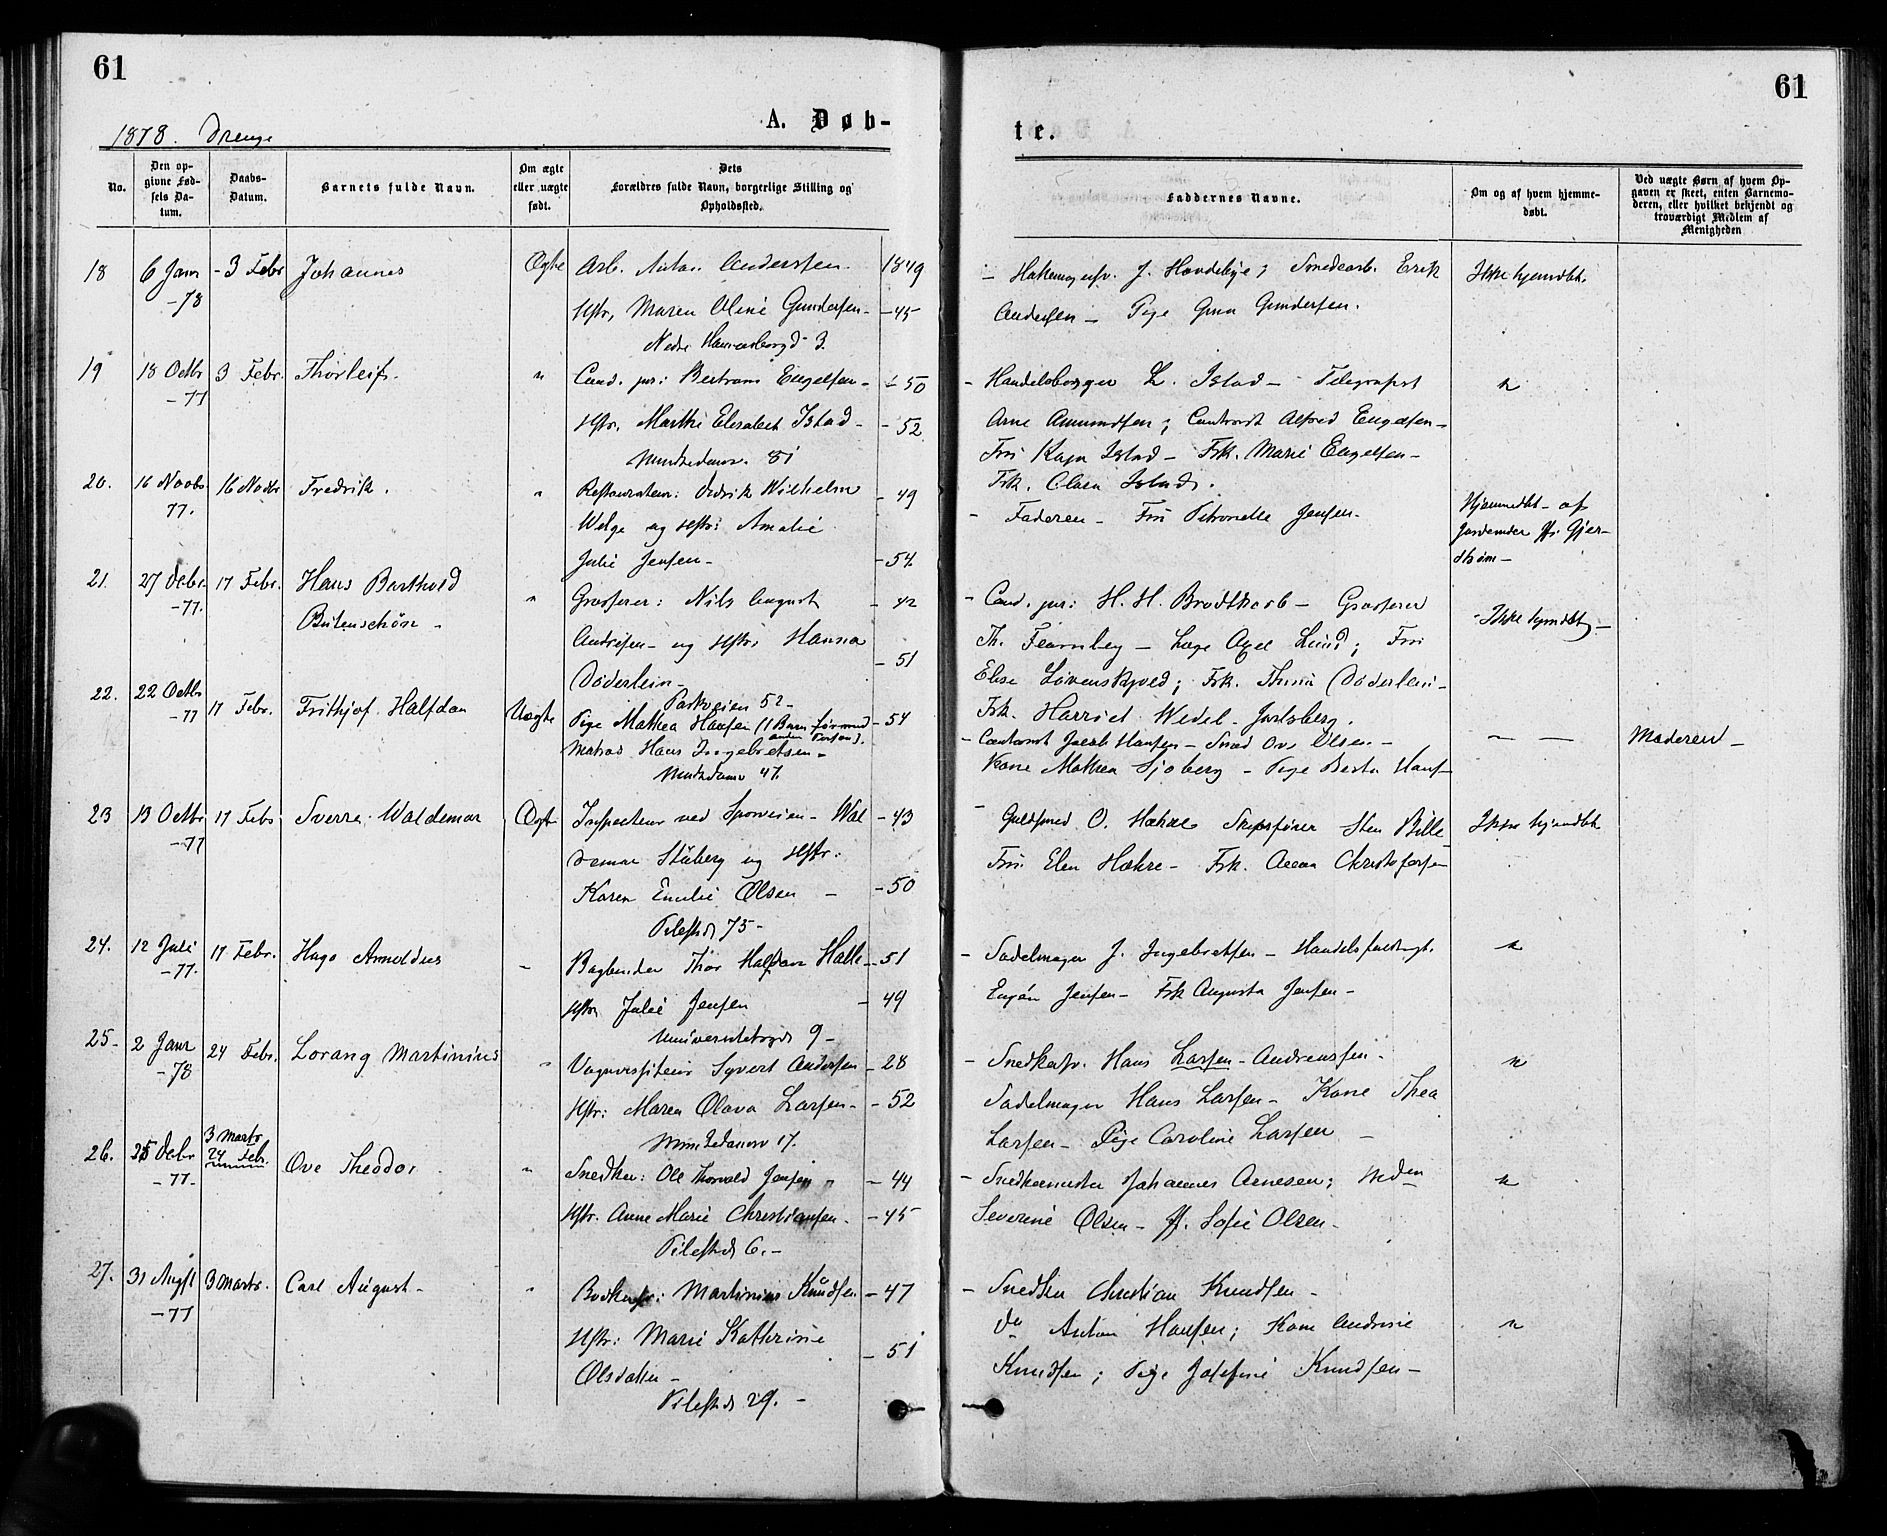 61
61
A. Døb-
te.
1878. Drenge
No.
Den op-
givne Fød-
sels Da-
tum.
Daabs-
Datum.
Barnets fulde Navn.
Om ægte
eller uægte
født.
Dets
Forældres fulde Navn, borgerlige Stilling og
Opholdssted.
Faddernes Navne.
Om og af hvem hjemme-
døbt.
Ved uægte Børn af hvem Op-
gaven er skeet, enten Barnemo-
deren, eller hvilket bekjendt og
troværdigt Medlem af
Menigheden
18 6 Janr - 3 Febr Johannes Ægte Arb. Anton Andersen. 1849
-78 Hstr, Maren Oline Gundersen - -45
Nedre Hammersborgd 3.
- J. Hovdebye; Smedearb. Erik
Andersen - Pige Gundersen.
Ikke hjemdbt.
19 18 Octbr 3 Febr. Thorleif. " Cand. jur: Bertram Engelsen - - 50
-77 Hstr. Marthe Elisabet Istad - - 52
Munkedamsv. 81
- Handelsborger L. Istad - Telegrafist
Arne Amundsen; Contorist Alfred Engelsen -
Fru Kaja Istad - Frk. Marie Engelsen -
Frk. Clara Istad.
"
20. 16 Novbr 16 Novbr Fredrik. " Restaurateur: Didrik Wilhelm - 49
77. Welge og Hstr: Amalie
Julie Jensen - - 54
- Faderen - Fru Petronelle Jensen -
Hjemmedbt - af
Jordemder Gjer-
drum -
21. 27 Debr. 17 Febr. Hans Barthold " Grosserer: Nils August - 42
-77. Butenschøn - Andresen - og Hstr: Hanna - 51
Døderlein -
Parkveien 52 -
- Cand. jur: H. H. Brodtkorb - Grosserer
Th. Fearnley - Læge Axel Lund; Fru
Elise Løvenskjold; Frk. Thina Døderlein -
Frk. Harriet Wedel - Jarlsberg.
- Ikke hjmdbt -
22. 22 Octbr 17 Febr. Frithjof Halfdan Uægte Pige Mathea Hansen (1 Barn - 54
-77 Matros Hans Ingebretsen -
Munkedamsv 47.
- Contorist Jacob Hansen - Smed Ove Olsen -
Kone Mathea Sjøberg - Pige Berta Hans-
- -
Moderen -
23 13 Octbr 17 Febr Sverre Waldemar Ægte Inspecteur ved Sporveien - Wal - 43
-77 demar Ståberg og Hstr:
Karen Emilie Olsen - - 50
Pilestræd 75 -
- Guldsmed O. Hækre Skipsfører Sten Bille
Fru Elen Hækre - Frk. Anna Christofersen
Ikke hjemdbt
24. 12 Juli 17 Febr. Hugo Arnoldus - Bogbinder Thor Halfdan Halle - 51
-77. Hstr Julie Jensen - 49
Universitetsgd 9 -
- Sadelmager J. Ingebretsen - Handelsfuldmgt.
Eugén Jensen - Frk Augusta Jensen -
"
25 - 2 Janr 24 Febr. Lorang Martinius " Vognvisiteur Syvert Andersen - 28
-78 Hstr: Maren Olava Larsen - - 52
Munkedamsv 17.
- Snedkersv. Hans Larsen - Andreassen -
Sadelmager Hans Larsen - Kone Thea
Larsen - Pige Caroline Larsen -
"
26. 25 Debr 3 Marts
24 Febr. Ove Theodor " Snedker: Ole Thorvald Jensen - 44
-77 - Hstr. Anne Marie Christiansen. - 45
Pilestræd 6. -
- Snedkermester Johannes Arnesen;
Severine Olsen - Sofie Olsen -
"
27. 31 Augst 3 Marts. Carl August - " Bødkersv: Martinius Knudsen - 47
-77 Hstr: Marie Kathrine
Olsdatter - - 51
Pilestræd 29. -
- Snedker Christian Knudsen -
do Anton Hansen; Kone Andrine
Knudsen; Pige Josefine Knudsen -
"